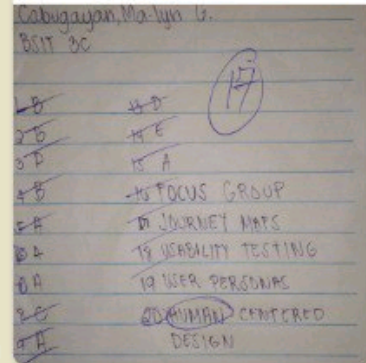 Cabugayan, Ma-lyn G.
BSIT 3C
17
1 B
2 E
3 D
4 B
5 A
6 A
8 A
9 A
13 D
14 E
15 A
16 FOCUS GROUP
17 JOURNEY MAPS
18 USABILITY TESTING
19 USER PERSONAS
20 HUMAN CENTERED
DESIGN